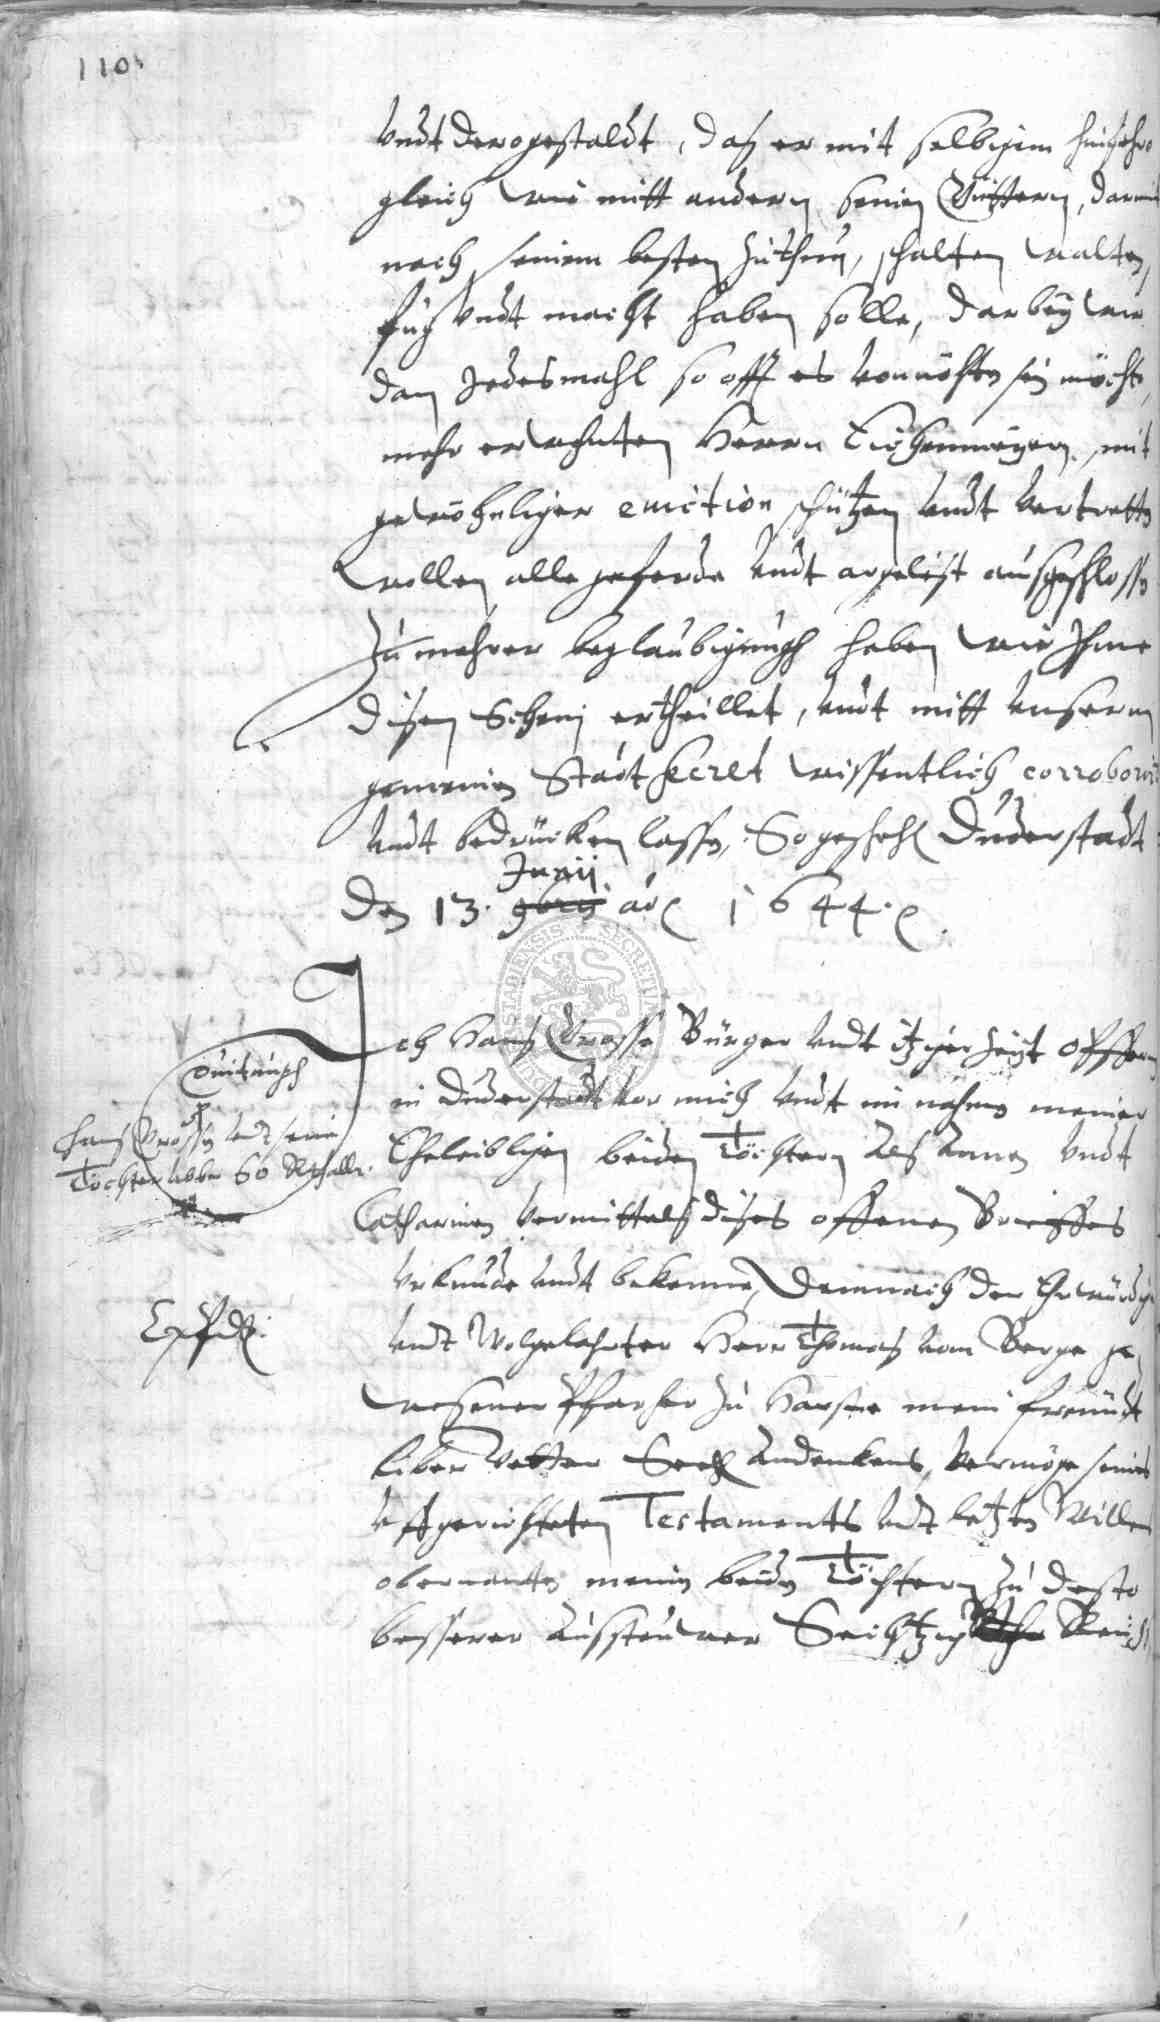 110
Vndt derogestaldt, daß er mit selbigem hinfehro
gleich wie mitt andern seinen Güttern, darmit
nach seinem besten zuthun, schalten walten,
fug vndt macht haben solle, darbey wir
dan Jedesmahl so offt es vonnöhten sein möchte,
mehr erwehnten Herrn Eichenmeyern, mit
gewöhnliger euiction schützen vndt vertretten
wollen, alle geferde vndt argelist außgeschlossen
Zu mehrer beglaubigungh haben wir Ihme
disen Schein ertheillet, vndt mitt vnserm
gemeinen Stadt secret wissentlich corroborirt
vndt bedrücken lassen, So geschehen Duderstadt
Junij
den 13. 9bris ao 1644.
STADIENSIS SECRETUM
Ich Hans Grosse Bürger vndt itziger Zeyt Opfferman
in Duderstadt vor mich vndt im nahmen meiner
Eheleibligen beiden Töchtern Als Annen vndt
Catharinen vermittelß dises offenen Brieffes
Vrkunde vndt bekenne, Demnach der Ehrwürdige
vndt Wolgelahrter Herr Thomas vom Berge ge
wesener Pfarher zu Harste mein freundt
liber Vetter Seel Andenkens, vermöge seines
vffgerichteten Testaments vndt letzten Willen
obernanten meinen beiden Töchtern zu desto
besserer Aussteuwer Sechtzig Reichs
Quitungh
Hans Grossen vndt seine
Töchter vbber 60 Rthaller.